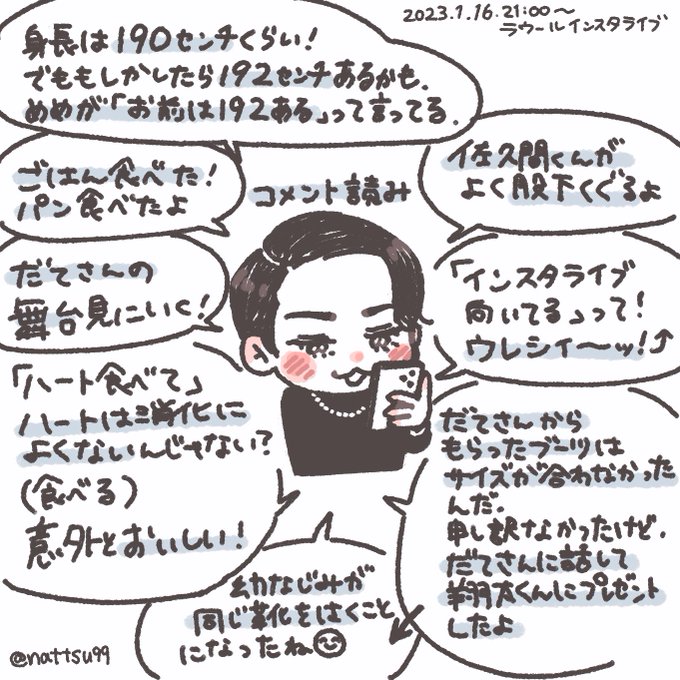 2023.1.16.21:00〜
ラウールインスタライブ
身長は190センチくらい!
でももしかしたら192センチあるかも.
めめが「お前は192ある」って言ってる.
ごはん食べた!
パン食べたよ
コメント読み
佐久間くんが
よく股下くぐるよ
だてさんの
舞台見にいく!
「インスタライブ
向いてる」って!
ウレシイ〜ッ!
「ハート食べて」
ハートは消化に
よくないんじゃない?
(食べる)
意外とおいしい!
だてさんから
もらったブーツは
サイズが合わなかった
んだ.
申し訳なかったけど.
だてさんに話して
翔太くんにプレゼント
したよ
幼なじみが
同じ靴をはくこと
になったね
@nattsu99